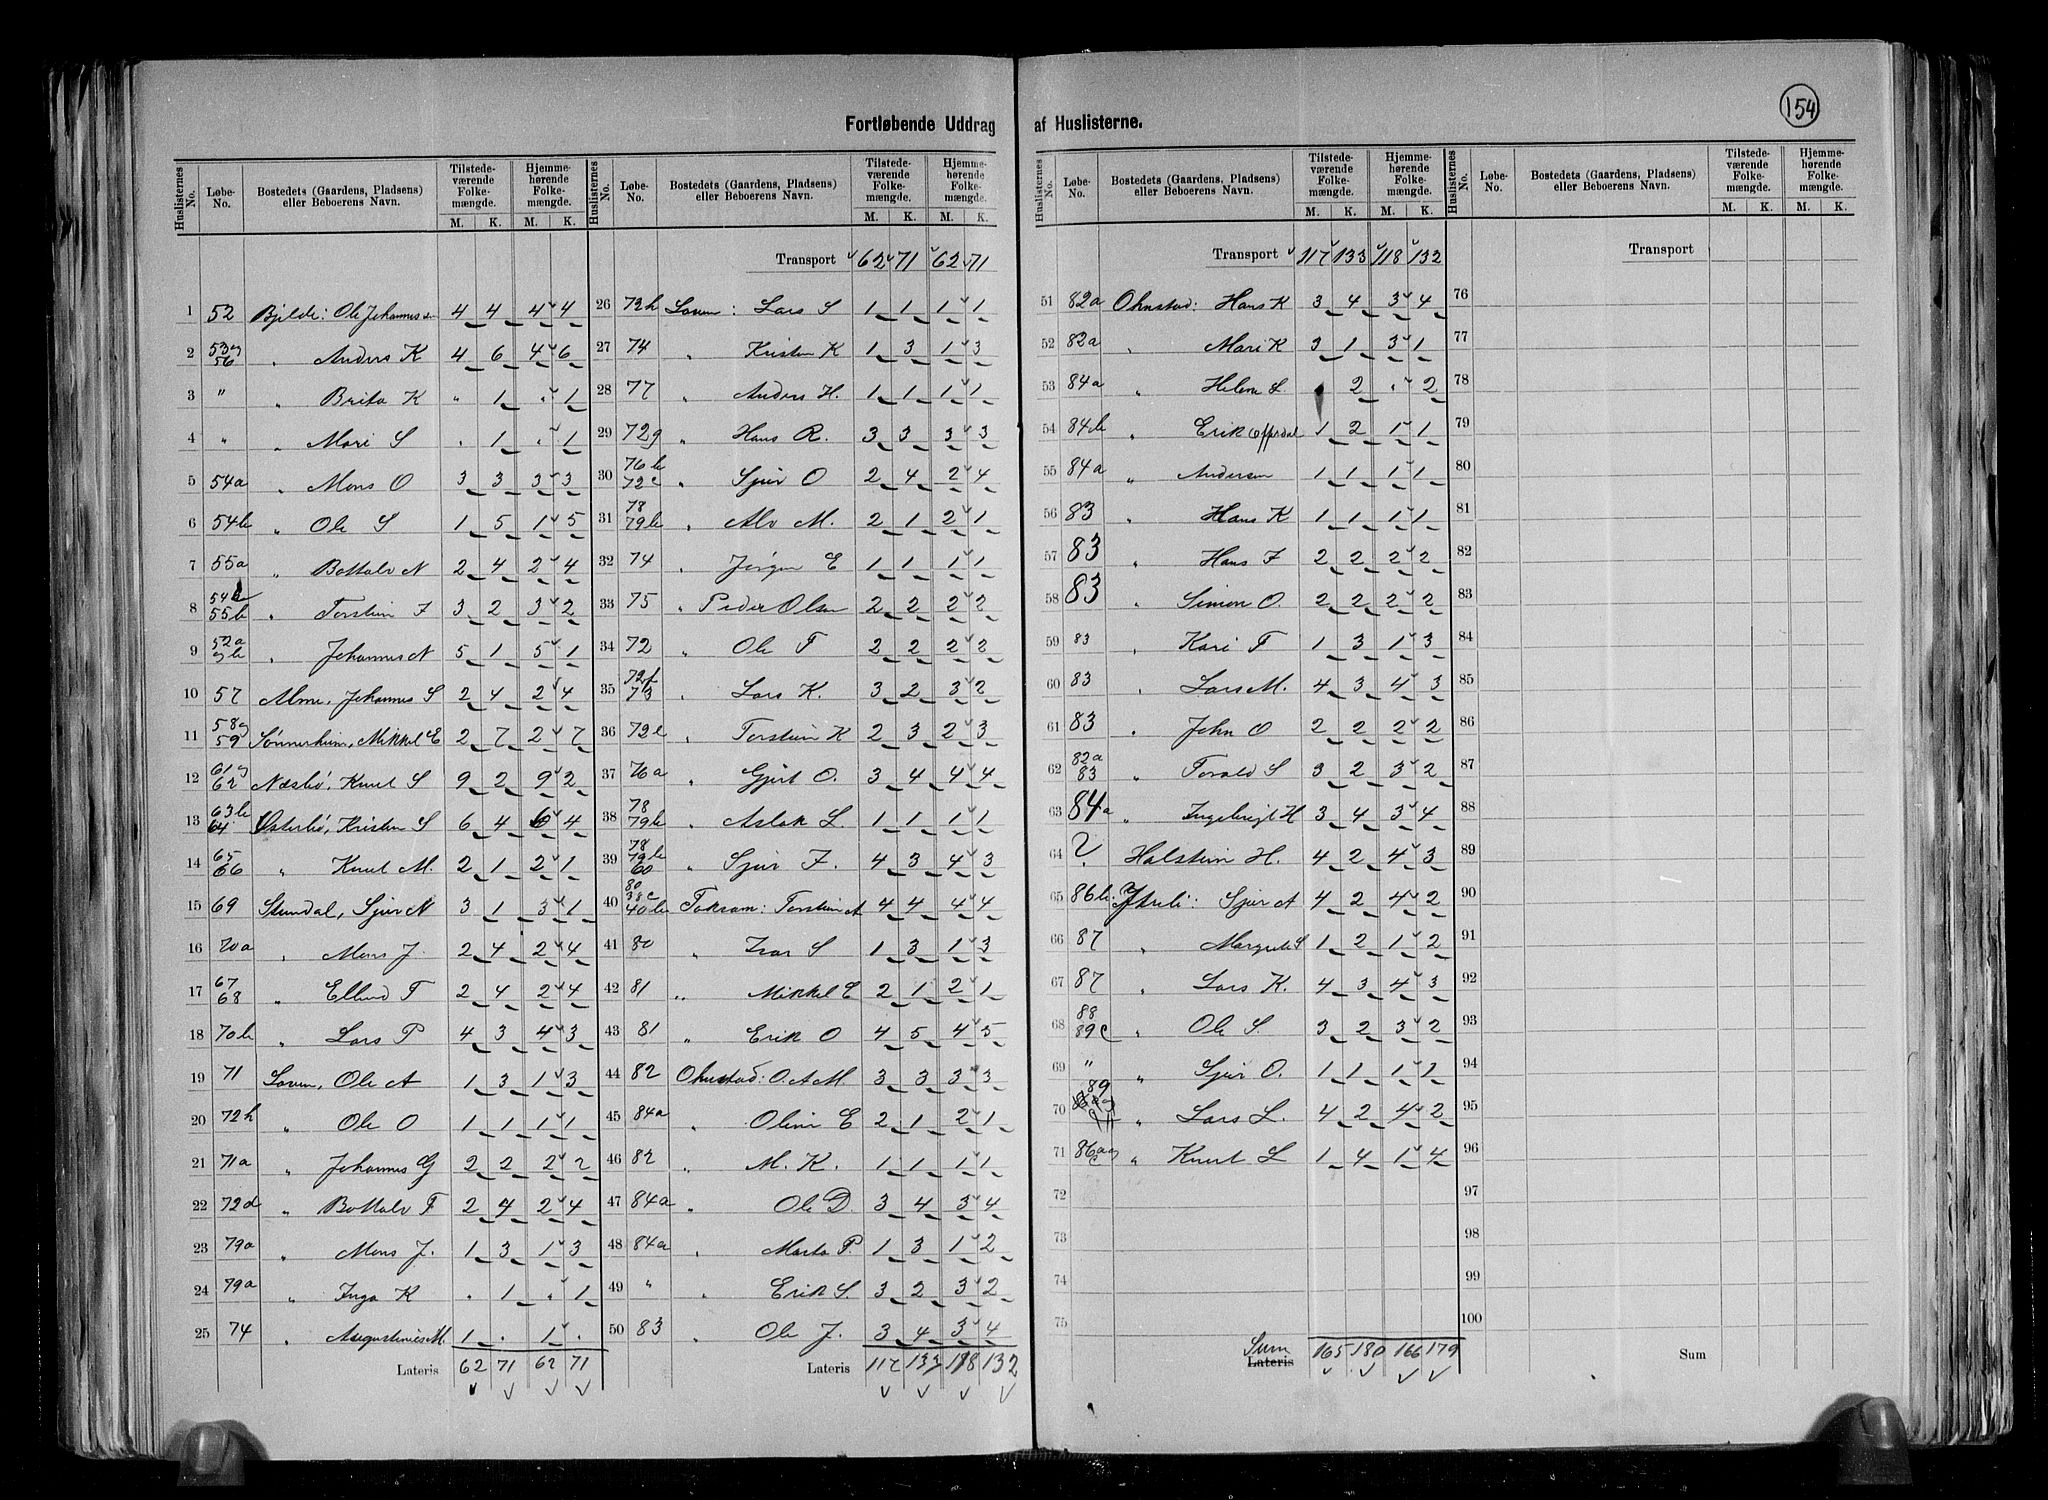 154
Fortløbende Uddrag af Huslisterne.
Huslisternes No. Løbe-No. Bostedets (Gaardens, Pladsens) eller Beboerens Navn. Tilstedeværende Folkemængde. M. K. Hjemmehørende Folkemængde. M. K.
1 52 Bjelde: Ole Johannes 4 4 4 4
2 53 og 56 " Anders K 4 6 4 6
3 " " Brita K " 1 . 1
4 " " Mari S . 1 . 1
5 54a " Mons O 3 3 3 3
6 54b " Ole S 1 5 1 5
7 55a " Bottolv N 2 4 2 4
8 54b 55b " Torstein J 3 2 3 2
9 52a og b " Johannes N 5 1 5 1
10 57 Alme, Johannes S 2 4 2 4
11 58 og 59 Sønnerheim, Mikkel E 2 7 2 7
12 61 og 62 Næsbø, Knut S 9 2 9 2
13 63b 64 Østerbø, Kristen S 6 4 6 4
14 65 66 " Knut M. 2 1 2 1
15 69 Stundal, Sjur N 3 1 3 1
16 70a " Mons J. 2 4 2 4
17 67 68 " Ellend T 2 4 2 4
18 70b " Lars P 4 3 4 3
19 71 Loven, Ole A 1 3 1 3
20 72h " Ole O 1 1 1 1
21 71a " Johannes G 2 2 2 2
22 72d " Bottolv T 2 4 2 4
23 79a " Mons J. 1 3 1 3
24 79a " Inga K . 1 . 1
25 74 " Augustinius M. 1 . 1 .
Lateris 62 71 62 71
Huslisternes No. Løbe-No. Bostedets (Gaardens, Pladsens) eller Beboerens Navn. Tilstedeværende Folkemængde. M. K. Hjemmehørende Folkemængde. M. K.
Transport 62 71 62 71
26 72h Loven: Lars S 1 1 1 1
27 74 " Kristen K 1 3 1 3
28 77 " Anders H. 1 1 1 1
29 72g " Hans R. 3 3 3 3
30 76b 72c " Sjur O 2 4 2 4
31 78 79b " Alv M. 2 1 2 1
32 74 " Jørgen E 1 1 1 1
33 75 " Peder Olsen 2 2 2 2
34 72 " Ole T 2 2 2 2
35 72f 73 " Lars K. 3 2 3 2
36 72e " Torstein K 2 3 2 3
37 76a " Gjert O. 3 4 4 4
38 78 79b " Aslak L. 1 1 1 1
39 78 79b 60 " Sjur J. 4 3 4 3
40 80 38c 40b Toksam: Torstein A 4 4 4 4
41 80 " Ivar S 1 3 1 3
42 81 " Mikkel E 2 1 2 1
43 81 " Erik O 4 5 4 5
44 82 Ohnstad: O. A M. 3 3 3 3
45 84a " Oline E 2 1 2 1
46 82 " M. K. 1 1 1 1
47 84a " Ole D. 3 4 3 4
48 84a " Marta P. 1 3 1 2
49 " " Erik S. 3 2 3 2
50 83 " Ole J. 3 4 3 4
Lateris 117 133 118 132
Huslisternes No. Løbe-No. Bostedets (Gaardens, Pladsens) eller Beboerens Navn. Tilstedeværende Folkemængde. M. K. Hjemmehørende Folkemængde. M. K.
Transport 117 133 118 132
51 82a Ohnstad: Hans K 3 4 3 4
52 82a " Mari K 3 1 3 1
53 84a " Helene L 2 . 2
54 84b " Erik Offerdal 1 2 1 1
55 84a " Andersen 1 1 1 1
56 83 " Hans K 1 1 1 1
57 83 " Hans J 2 2 2 2
58 83 " Simon O. 2 2 2 2
59 83 " Kari T 1 3 1 3
60 83 " Lars M. 4 3 4 3
61 83 " John O 2 2 2 2
62 82a 83 " Torald S 3 2 3 2
63 84a " Ingebrigt H 3 4 3 4
64 ? Halstein H. 4 2 4 3
65 86b Ytreli: Sjur A 4 2 4 2
66 87 " Margrete S 1 2 1 2
67 87 " Lars K. 4 3 4 3
68 88 89c " Ole S. 3 2 3 2
69 " " Sjur O. 1 1 1 1
70 89 " Lars L. 4 2 4 2
71 86a og c " Knut L 1 4 1 4
72
73
74
75
Sum Lateris 165 180 166 179
Huslisternes No. Løbe-No. Bostedets (Gaardens, Pladsens) eller Beboerens Navn. Tilstedeværende Folkemængde. M. K. Hjemmehørende Folkemængde. M. K.
Transport
76
77
78
79
80
81
82
83
84
85
86
87
88
89
90
91
92
93
94
95
96
97
98
99
100
Sum